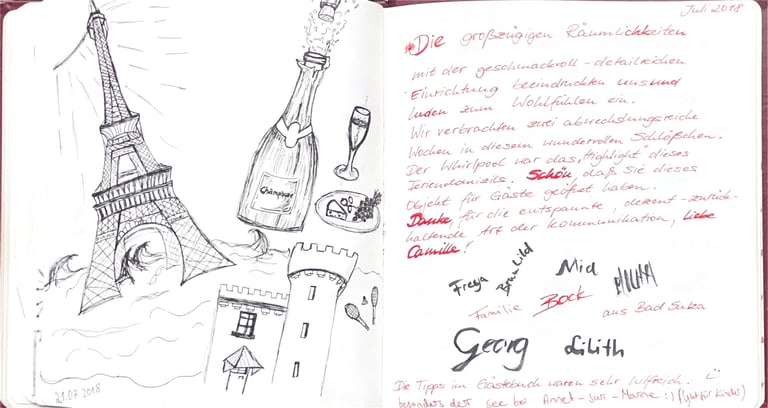 Champagne
21.07.2018
Juli 2018
*Die großzügigen Räumlichkeiten
mit der geschmackvoll-detailreichen
Einrichtung beeindruckten uns und
luden zum Wohlfühlen ein.
Wir verbrachten zwei abwechslungsreiche
Wochen in diesem wundervollen Schlößchen.
Der Whirlpool war das "Highlight" dieses
Feriendomizils. Schön, daß Sie dieses
Objekt für Gäste geöffnet haben.
Danke, für die entspannte, dezent-zurück-
haltende Art der Kommunikation, liebe
Camille!
Freya Brunhild Mid
Familie Bock aus Bad Sulza
Georg Lilith
Die Tipps im Gästebuch waren sehr hilfreich. :)
besonders der See bei Annet-sur-Marne :) (gut für Kinder)